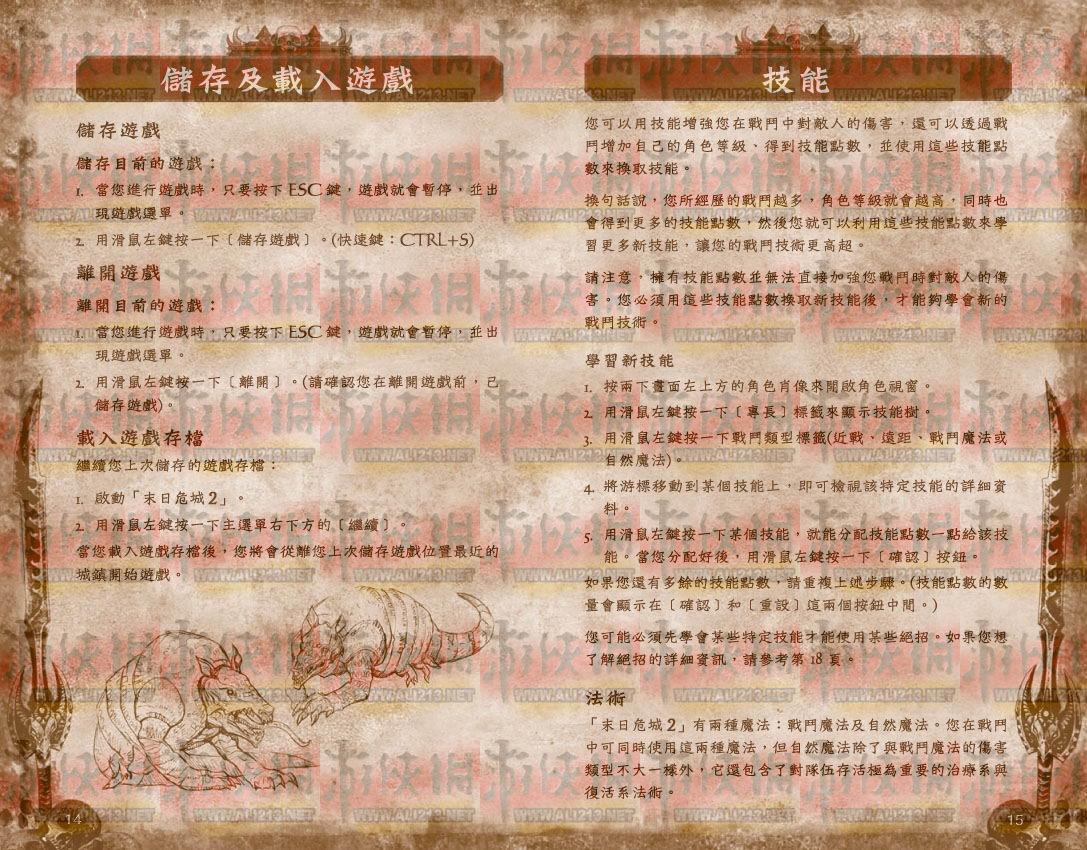 儲存及載入遊戲
儲存遊戲
儲存目前的遊戲：
1. 當您進行遊戲時，只要按下 ESC 鍵，遊戲就會暫停，並出
現遊戲選單。
2. 用滑鼠左鍵按一下〔儲存遊戲〕。(快速鍵：CTRL+S)
離開遊戲
離開目前的遊戲：
1. 當您進行遊戲時，只要按下 ESC 鍵，遊戲就會暫停，並出
現遊戲選單。
2. 用滑鼠左鍵按一下〔離開〕。(請確認您在離開遊戲前，已
儲存遊戲)。
載入遊戲存檔
繼續您上次儲存的遊戲存檔：
1. 啟動「末日危城 2」。
2. 用滑鼠左鍵按一下主選單右下方的〔繼續〕。
當您載入遊戲存檔後，您將會從離您上次儲存遊戲位置最近的
城鎮開始遊戲。
14
技能
您可以用技能增強您在戰鬥中對敵人的傷害，還可以透過戰
鬥增加自己的角色等級、得到技能點數，並使用這些技能點
數來換取技能。
換句話說，您所經歷的戰鬥越多，角色等級就會越高，同時也
會得到更多的技能點數，然後您就可以利用這些技能點數來學
習更多新技能，讓您的戰鬥技術更高超。
請注意，擁有技能點數並無法直接加強您戰鬥時對敵人的傷
害。您必須用這些技能點數換取新技能後，才能夠學會新的
戰鬥技術。
學習新技能
1. 按兩下畫面左上方的角色肖像來開啟角色視窗。
2. 用滑鼠左鍵按一下〔專長〕標籤來顯示技能樹。
3. 用滑鼠左鍵按一下戰鬥類型標籤(近戰、遠距、戰鬥魔法或
自然魔法)。
4. 將游標移動到某個技能上，即可檢視該特定技能的詳細資
料。
5. 用滑鼠左鍵按一下某個技能，就能分配技能點數一點給該技
能。當您分配好後，用滑鼠左鍵按一下〔確認〕按鈕。
如果您還有多餘的技能點數，請重複上述步驟。(技能點數的數
量會顯示在〔確認〕和〔重設〕這兩個按鈕中間。)
您可能必須先學會某些特定技能才能使用某些絕招。如果您想
了解絕招的詳細資訊，請參考第 18 頁。
法術
「末日危城 2」有兩種魔法：戰鬥魔法及自然魔法。您在戰鬥
中可同時使用這兩種魔法，但自然魔法除了與戰鬥魔法的傷害
類型不大一樣外，它還包含了對隊伍存活極為重要的治療系與
復活系法術。
15
游俠網
WWW.ALI213.NET